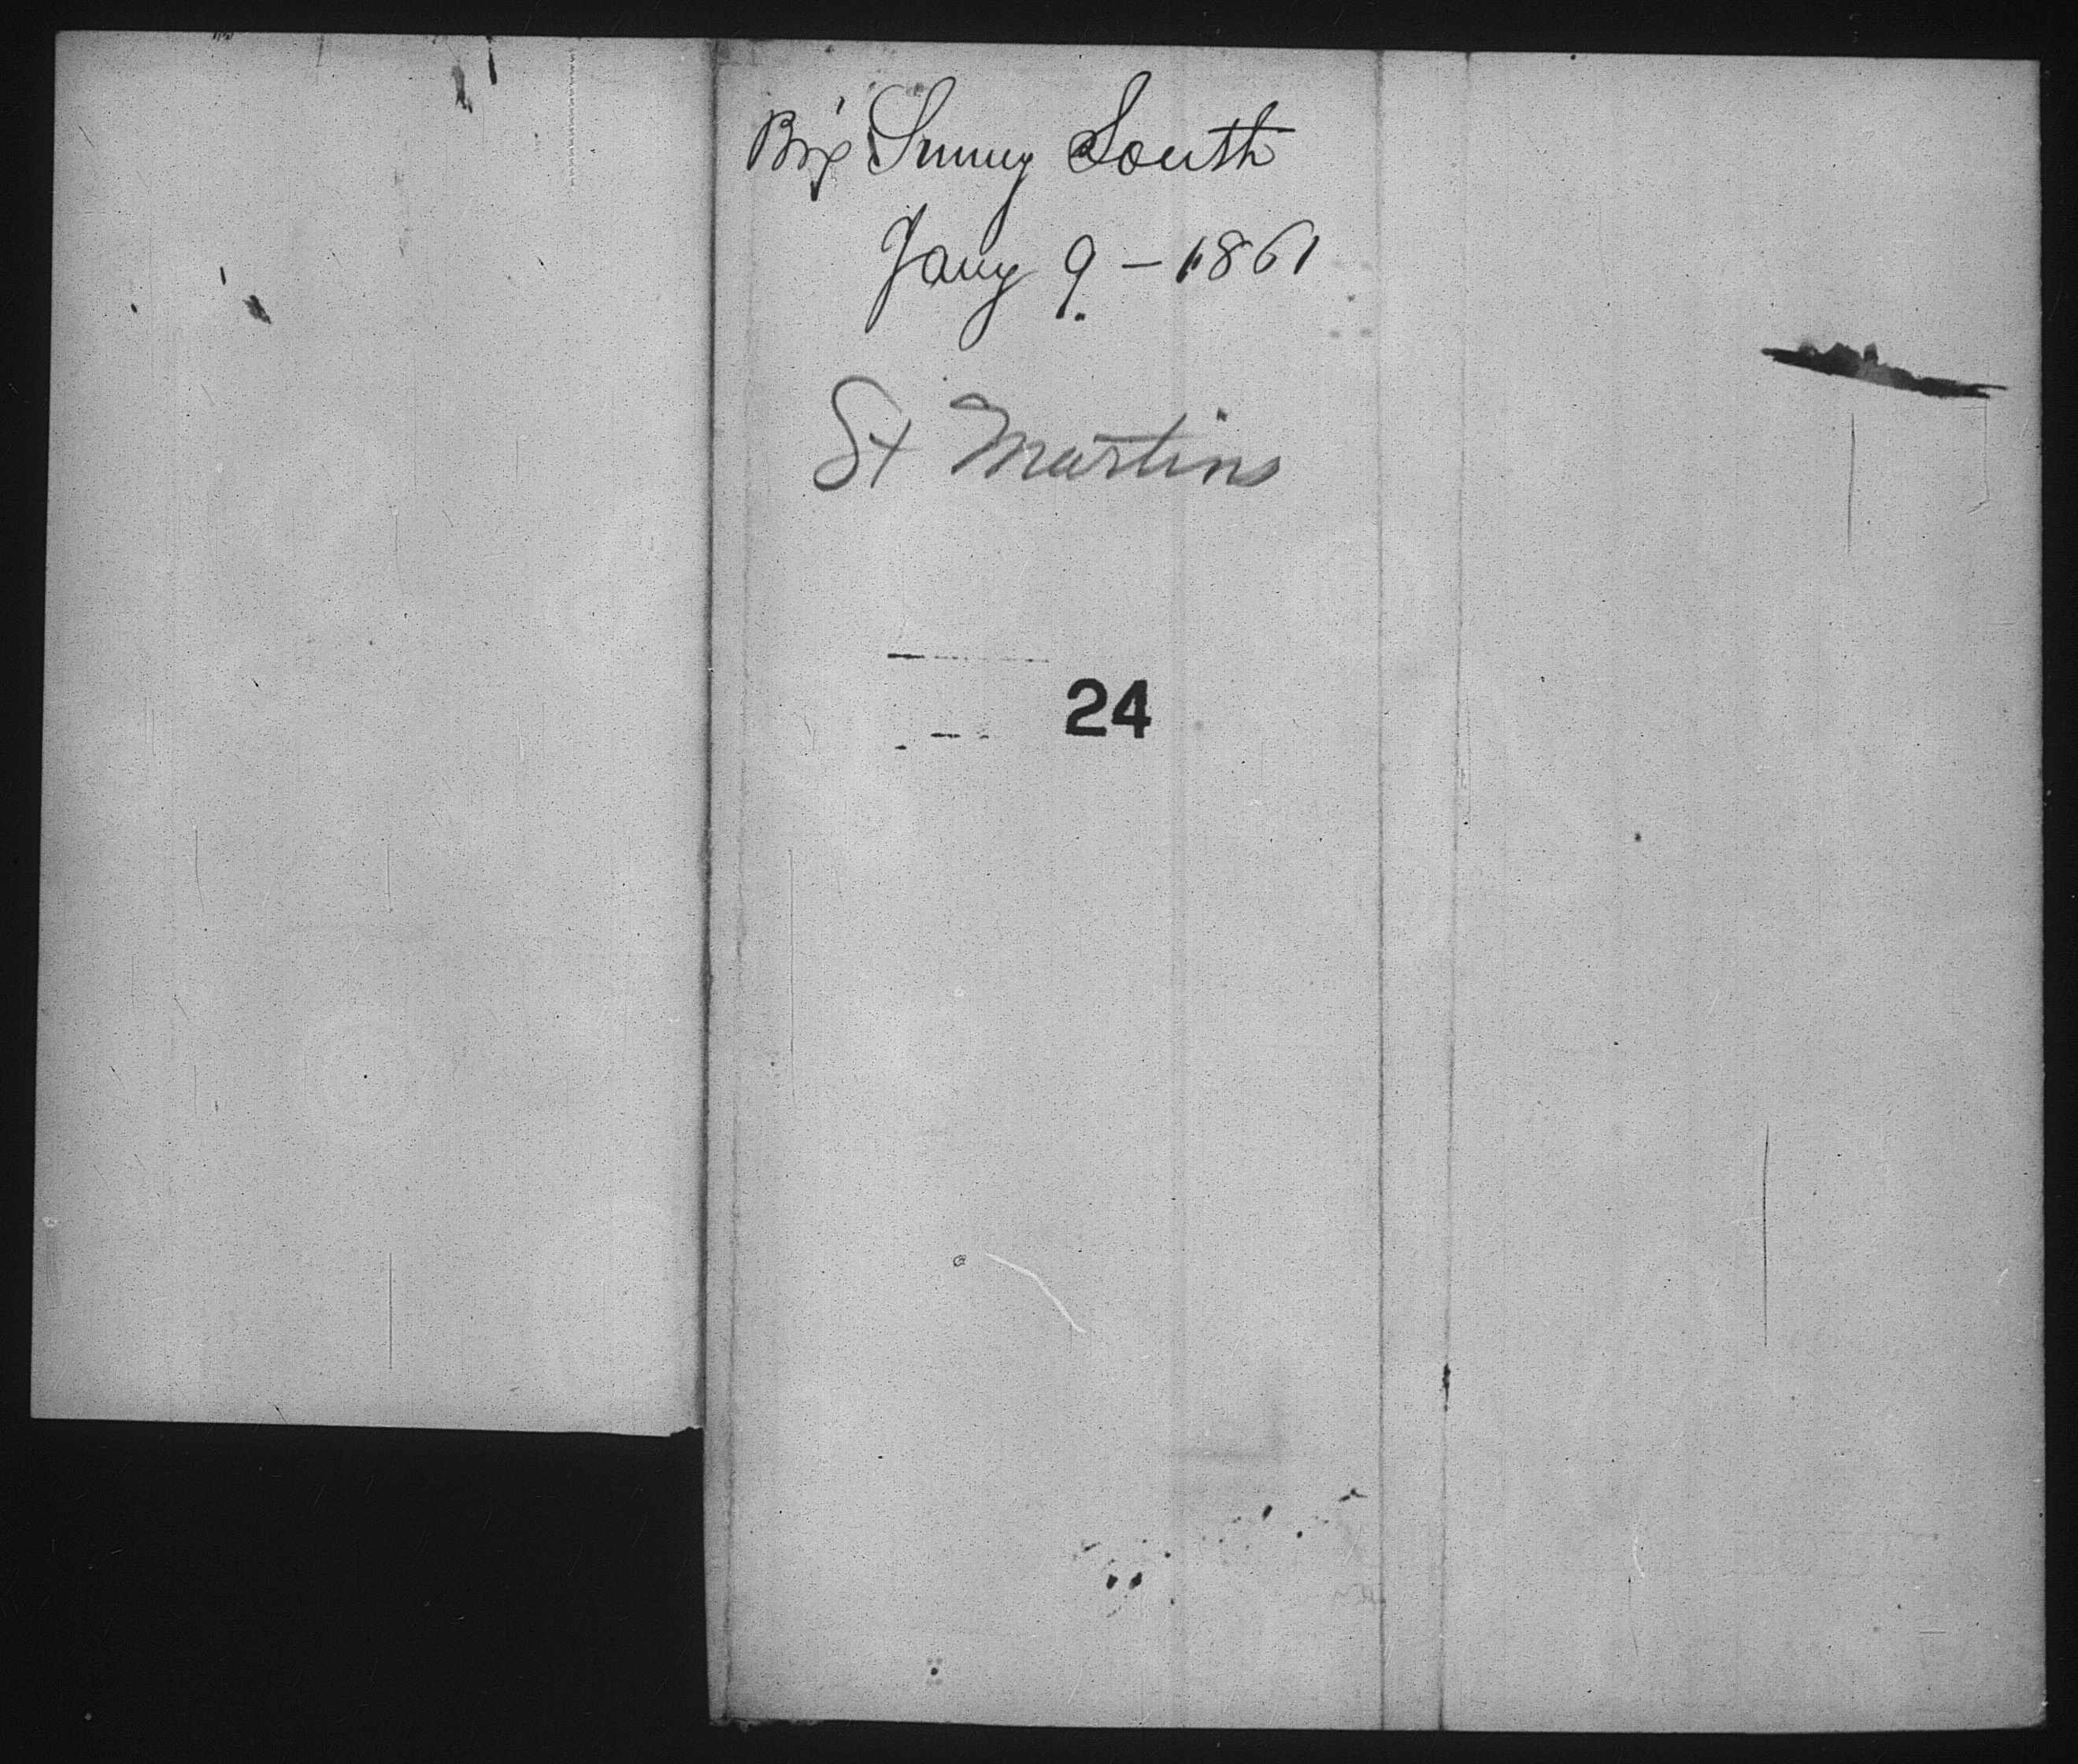 Brig Sunny South
Jany 9 - 1861
St Martins
24